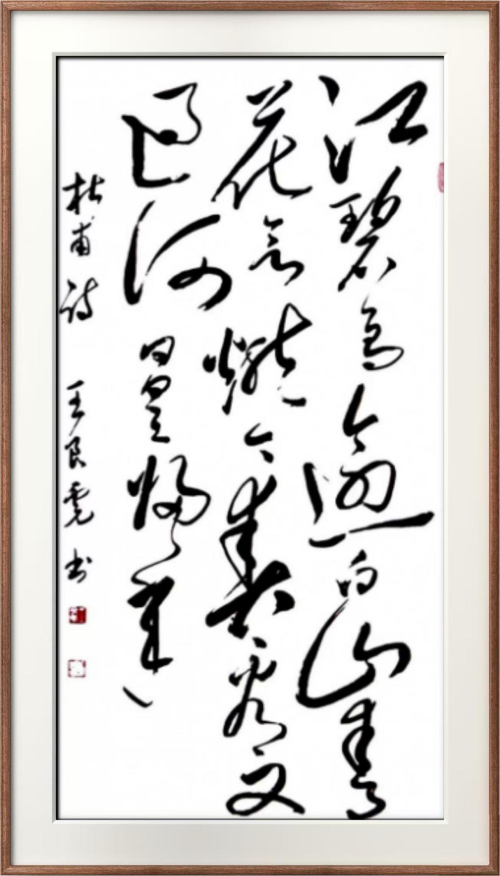 江碧鸟逾白山青
花欲燃今春看又
过何日是归年
杜甫诗 王良虎书